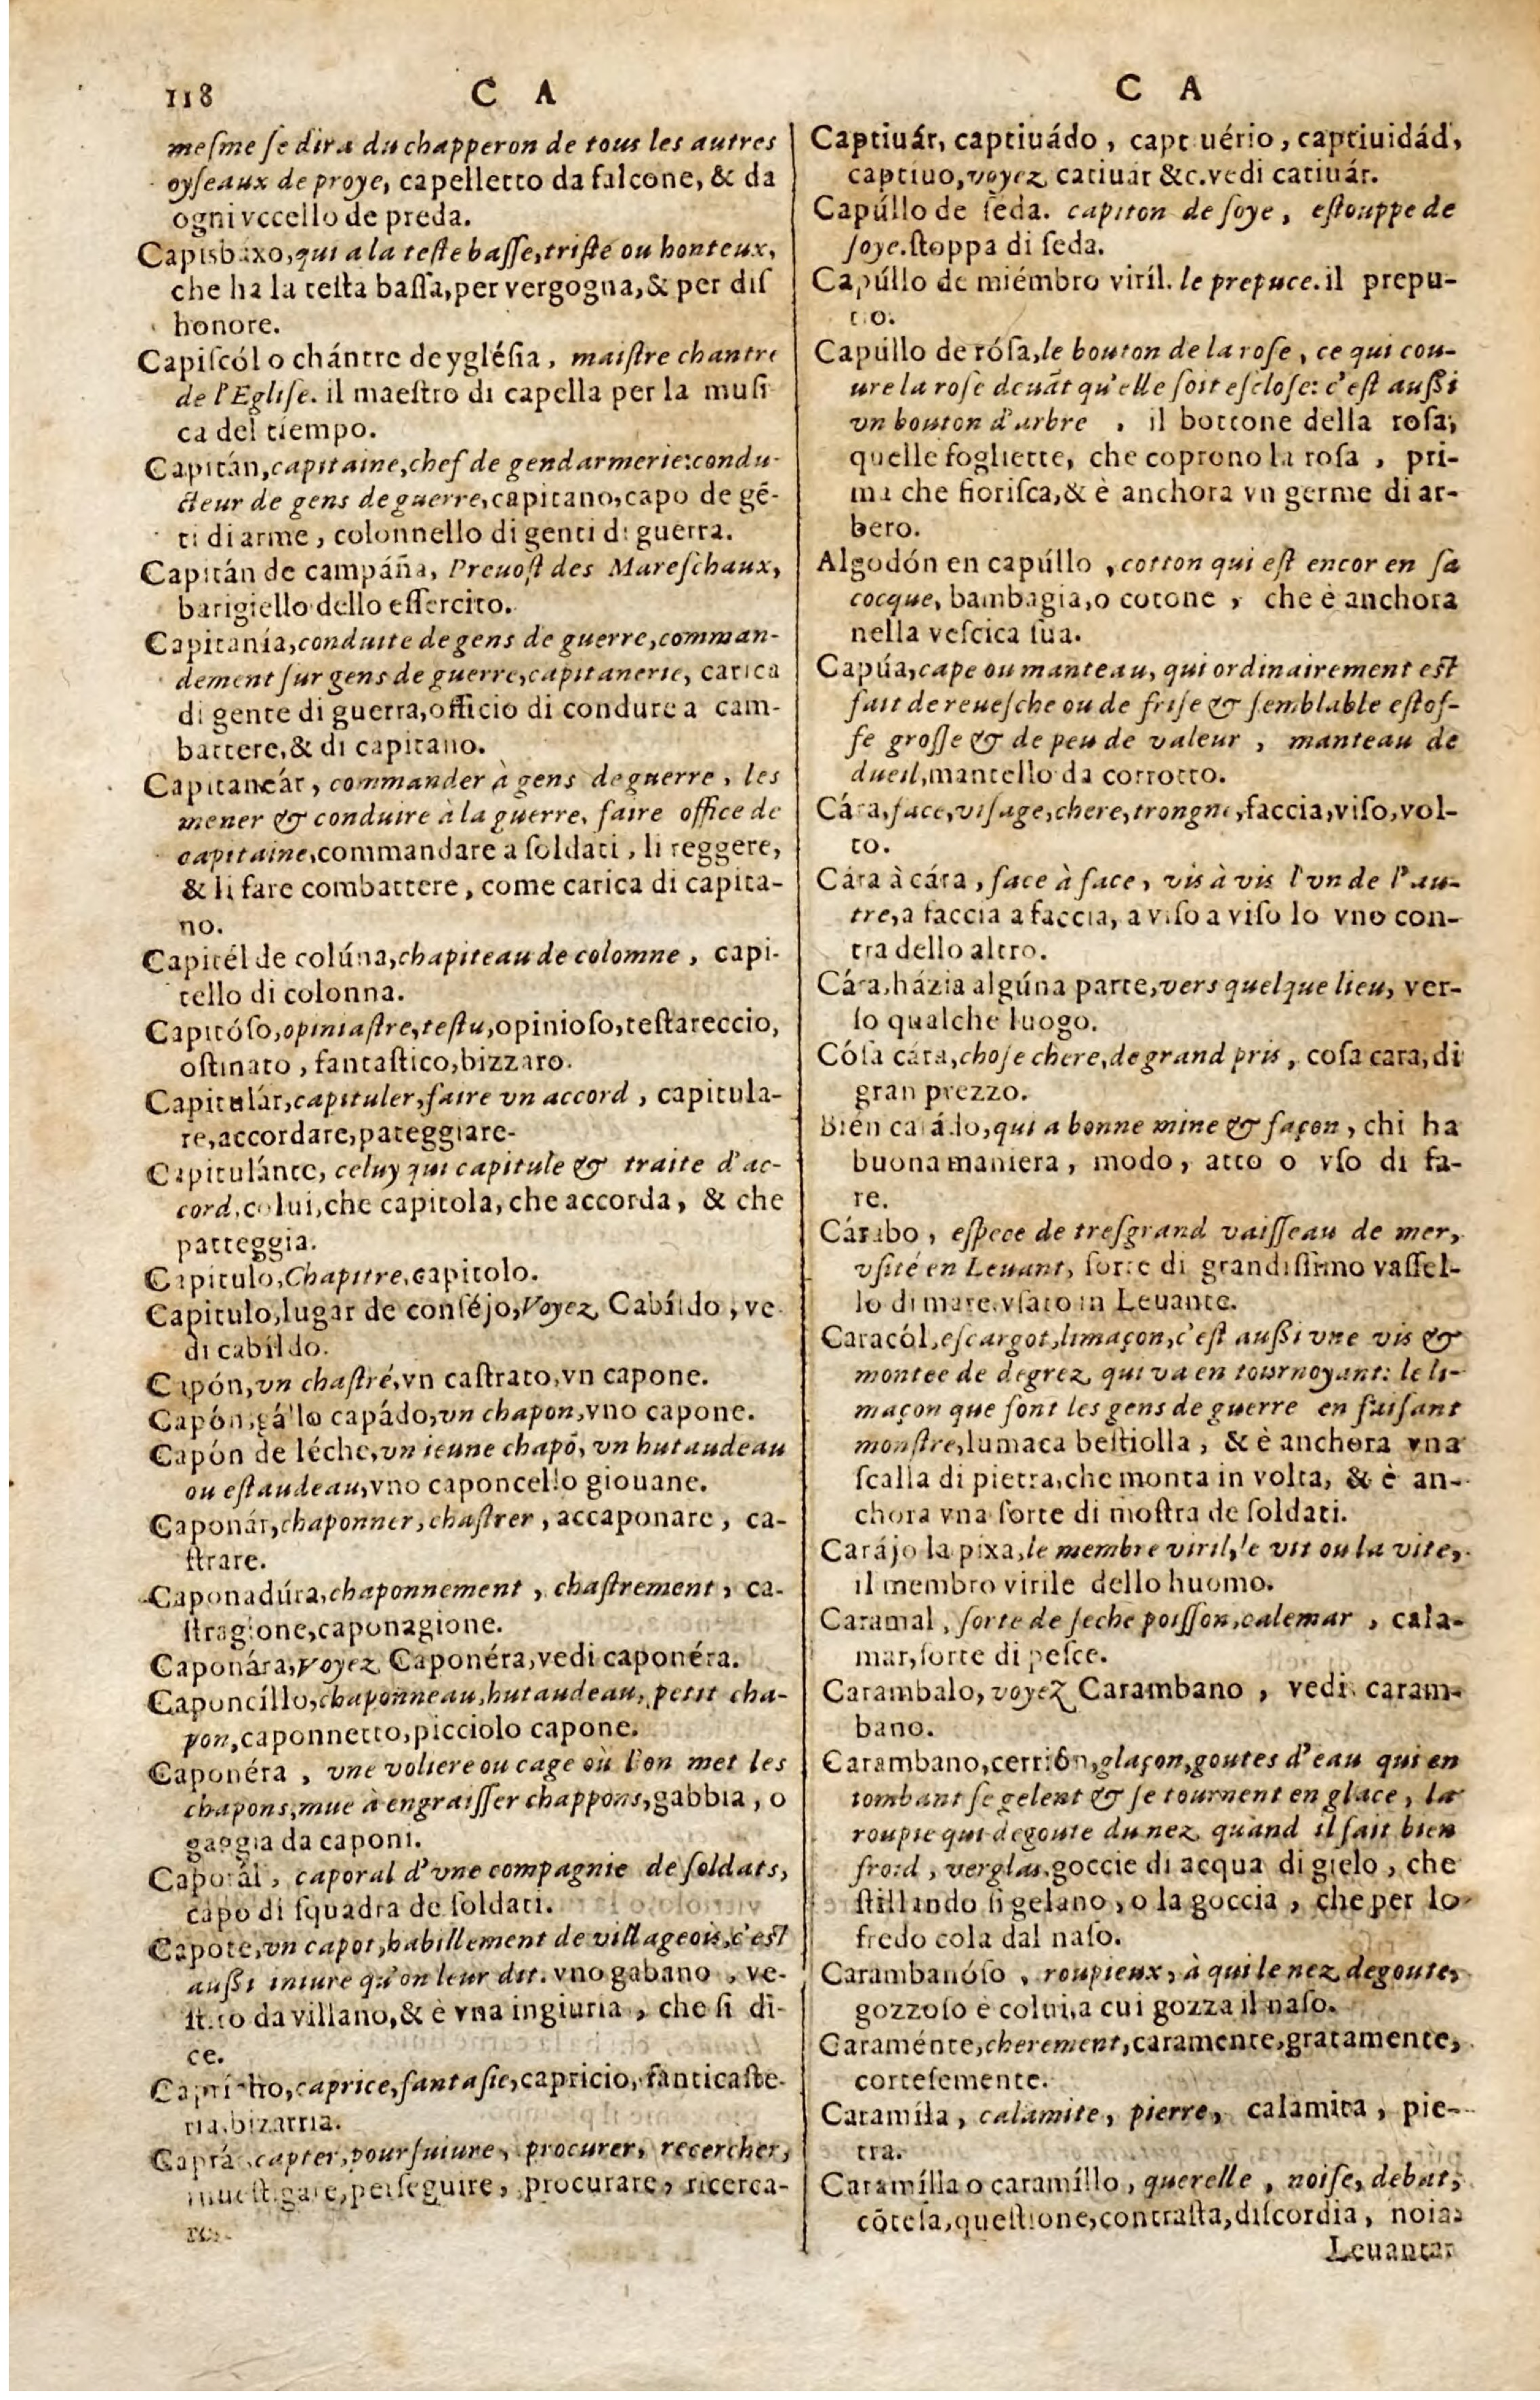 118 C A
meſme ſe dira du chapperon de tous les autres
oyſeaux de proye, capelletto da falcone, & da
ogni vccello de preda.
Capisbáxo, qui a la teſte baſſe, triſte ou honteux,
che ha la teſta baſſa, per vergogna, & per diſ
honore.
Capiſcól o chántre de ygléſia, maiſtre chantre
de l'Egliſe. il maeſtro di capella per la muſi
ca del tiempo.
Capitán, capitaine, chef de gendarmerie: condu-
cteur de gens de guerre, capitano, capo de gē-
ti di arme, colonnello di genti di guerra.
Capitán de campáña, Preuoſt des Mareſchaux,
barigiello dello eſſercito.
Capitanía, conduite de gens de guerre, comman-
dement ſur gens de guerre, capitanerie, carica
di gente di guerra, officio di condure a cam-
battere, & di capitano.
Capitaneár, commander à gens de guerre, les
mener & conduire à la guerre, faire office de
capitaine, commandare a ſoldati, li reggere,
& li fare combattere, come carica di capita-
no.
Capitél de colúna, chapiteau de colomne, capi-
tello di colonna.
Capitóſo, opiniaſtre, teſtu, opinioſo, teſtareccio,
oſtinato, fantaſtico, bizzaro.
Capitulár, capituler, faire vn accord, capitula-
re, accordare, pateggiare-
Capitulánte, celuy qui capitule & traite d'ac-
cord, colui, che capitola, che accorda, & che
patteggia.
Capitulo, Chapitre, capitolo.
Capitulo, lugar de conſéjo, Voyez Cabíldo, ve
di cabíldo.
Capón, vn chaſtré, vn caſtrato, vn capone.
Capón, gállo capádo, vn chapon, vno capone.
Capón de léche, vn ieune chapō, vn hutaudeau
ou eſtaudeau, vno caponcello giouane.
Caponár, chaponner, chaſtrer, accaponare, ca-
ſtrare.
Caponadúra, chaponnement, chaſtrement, ca-
ſtragione, caponagione.
Caponára, Voyez Caponéra, vedi caponéra.
Caponcíllo, chaponneau, hutaudeau, petit cha-
pon, caponnetto, picciolo capone.
Caponéra, vne voliere ou cage où l'on met les
chapons, mue à engraiſſer chappons, gabbia, o
gaggia da caponi.
Caporál, caporal d'vne compagnie de ſoldats,
capo di ſquadra de ſoldati.
Capote, vn capot, habillement de villageois, c'eſt
auſſi iniure qu'on leur dit. vno gabano, ve-
ſtito da villano, & è vna ingiuria, che ſi di-
ce.
Caprícho, caprice, fantaſie, capricio, fanticaſte-
ria, bizarria.
Captár, capter, pourſuiure, procurer, recercher,
inueſtigare, perſeguire, procurare, ricerca-
re.
C A
Captiuár, captiuádo, capt uério, captiuidád,
captiuo, voyez catiuár &c. vedi catiuár.
Capúllo de ſéda. capiton de ſoye, eſtouppe de
ſoye. ſtoppa di ſeda.
Capúllo de miémbro viríl. le prepuce. il prepu-
tio.
Capúllo de róſa, le bouton de la roſe, ce qui cou-
ure la roſe deuāt qu'elle ſoit eſcloſe: c'eſt auſſi
vn bouton d'arbre, il bottone della roſa,
quelle fogliette, che coprono la roſa, pri-
ma che fioriſca, & è anchora vn germe di ar-
bero.
Algodón en capúllo, cotton qui eſt encor en ſa
cocque, bambagia, o cotone, che è anchora
nella veſcica ſua.
Capúa, cape ou manteau, qui ordinairement eſt
fait de reueſche ou de friſe & ſemblable eſtof-
fe groſſe & de peu de valeur, manteau de
dueil, mantello da corrotto.
Cára, face, viſage, chere, trongne, faccia, viſo, vol-
to.
Cára à cára, face à face, vis à vis l'vn de l'au-
tre, a faccia a faccia, a viſo a viſo lo vno con-
tra dello altro.
Cára, házia algúna parte, vers quelque lieu, ver-
ſo qualche luogo.
Cóſa cára, choſe chere, de grand pris, coſa cara, di
gran prezzo.
Bién carádo, qui a bonne mine & façon, chi ha
buona maniera, modo, atto o vſo di fa-
re.
Cárabo, eſpece de treſgrand vaiſſeau de mer,
vſité en Leuant, ſorte di grandiſſimo vaſſel-
lo di mare vſato in Leuante.
Caracól, eſcargot, limaçon, c'eſt auſſi vne vis &
montee de degrez qui va en tournoyant: le li-
maçon que font les gens de guerre en faiſant
monſtre, lumaca beſtiolla, & è anchora vna
ſcalla di pietra, che monta in volta, & è an-
chora vna ſorte di moſtra de ſoldati.
Carájo la pixa, le membre viril, le vit ou la vite,
il membro virile dello huomo.
Caramal, ſorte de ſeche poiſſon, calemar, cala-
mar, ſorte di peſce.
Carambalo, voyez Carambano, vedi caram-
bano.
Carambano, cerrión, glaçon, goutes d'eau qui en
tombant ſe gelent & ſe tournent en glace, la
roupie qui degoute du nez quànd il fait bien
froid, verglas. goccie di acqua di gielo, che
ſtillando ſi gelano, o la goccia, che per lo
fredo cola dal naſo.
Carambanóſo, roupieux, à qui le nez degoute,
gozzoſo è colui, a cui gozza il naſo.
Caraménte, cherement, caramente, gratamente,
corteſemente.
Caramíla, calamite, pierre, calamita, pie-
tra.
Caramílla o caramíllo, querelle, noiſe, debat,
cōteſa, queſtione, contraſta, diſcordia, noia:
Leuantar